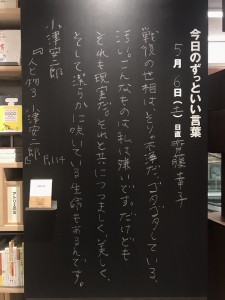 今日のずっといい言葉
5月6日(土)日直 齋藤幸子
戦後の世相は、そりゃ不浄だ、ゴタゴタしている、
汚い。こんなものは私は嫌いです。だけども
それも現実だ。それと共につつましく、美しく、
そして潔らかに咲いている生命もあるんです。
小津安二郎
『人と物3 小津安二郎』P.114